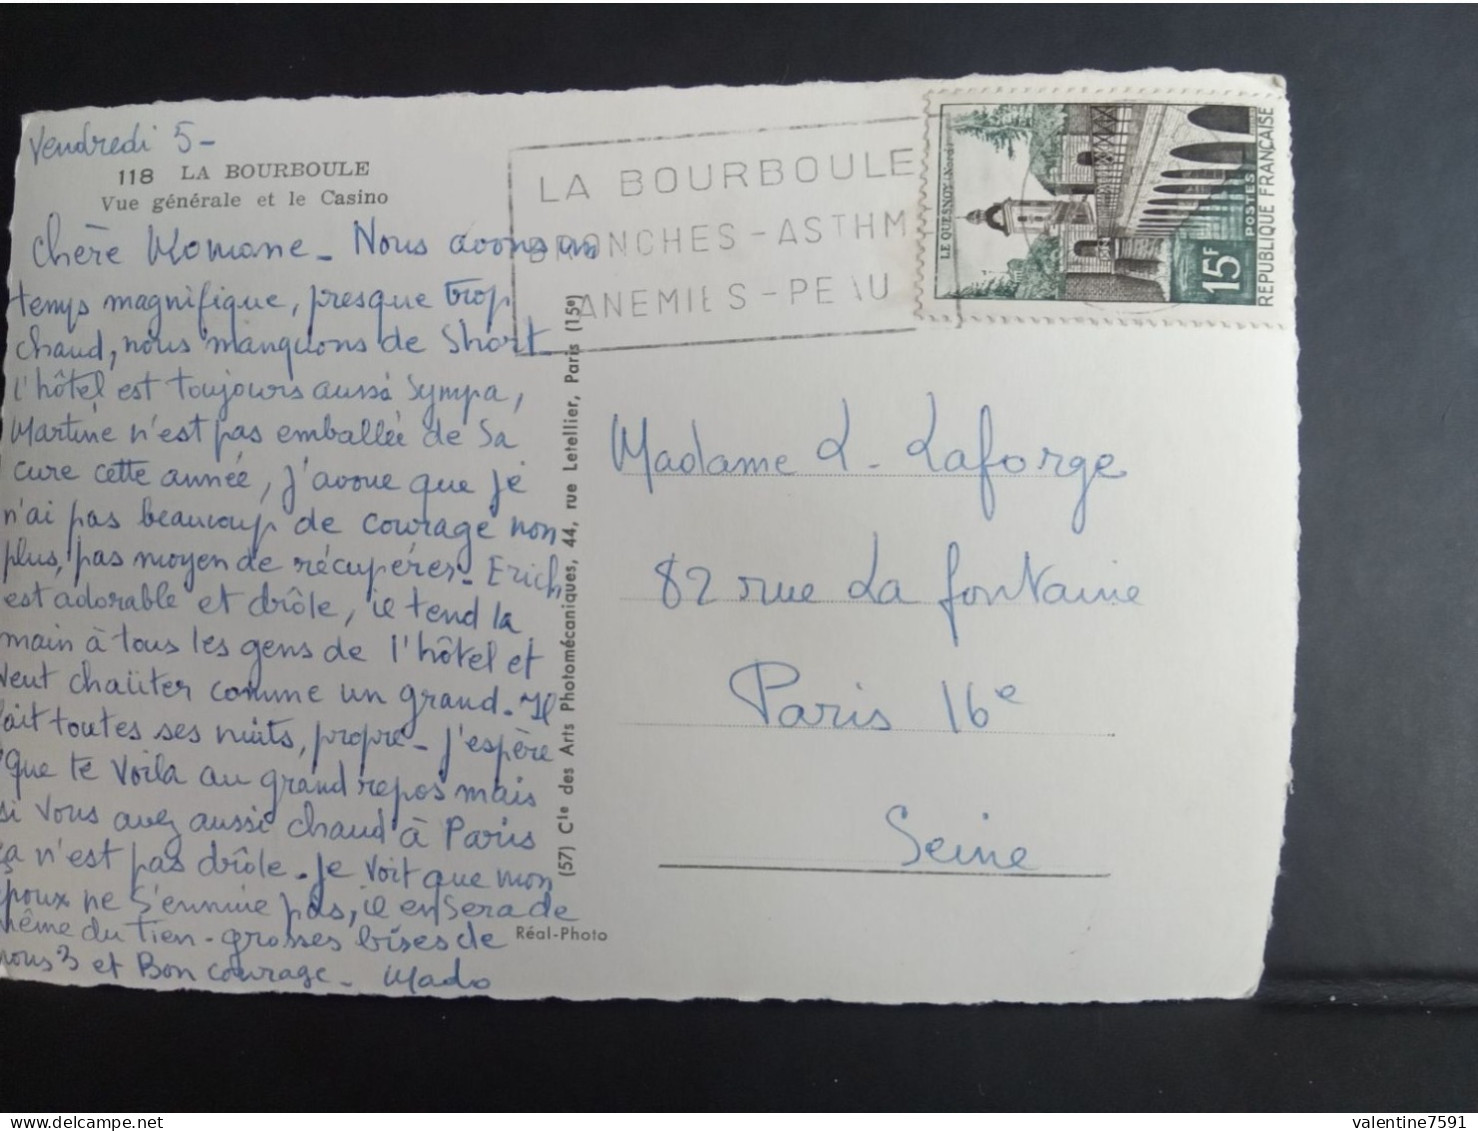 Vendredi 5-
118 LA BOURBOULE
Vue générale et le Casino
Chère Momone - Nous avons un
temps magnifique, presque trop
chaud, nous manquons de Short
l'hôtel est toujours aussi sympa,
Martine n'est pas emballée de sa
cure cette année, j'avoue que je
n'ai pas beaucoup de courage non
plus, pas moyen de récupérer - Erich
est adorable et drôle, il tend la
main à tous les gens de l'hôtel et
veut chahuter comme un grand. Il
fait toutes ses nuits, propre - j'espère
que te voila au grand repos mais
si vous avez aussi chaud à Paris
ça n'est pas drôle. Je voit que mon
époux ne s'ennuie pas, il en sera de
même du tien - grosses bises de
nous 3 et Bon courage - Mado
LA BOURBOULE
BRONCHES - ASTHM
ANEMIES - PEAU
LE QUESNOY (Nord)
15F
POSTES
REPUBLIQUE FRANÇAISE
(57) Cie des Arts Photomécaniques, 44, rue Letellier, Paris (15e)
Réal-Photo
Madame L. Laforge
82 rue La fontaine
Paris 16e
Seine
valentine7591